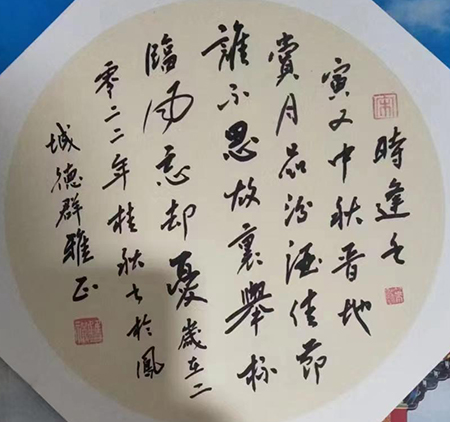 時逢壬
寅又中秋晋地
賞月品汾酒佳節
誰不思故裏舉杯
臨風忘却憂歲在二
零二二年桂秋书於鳳
城德群雅正